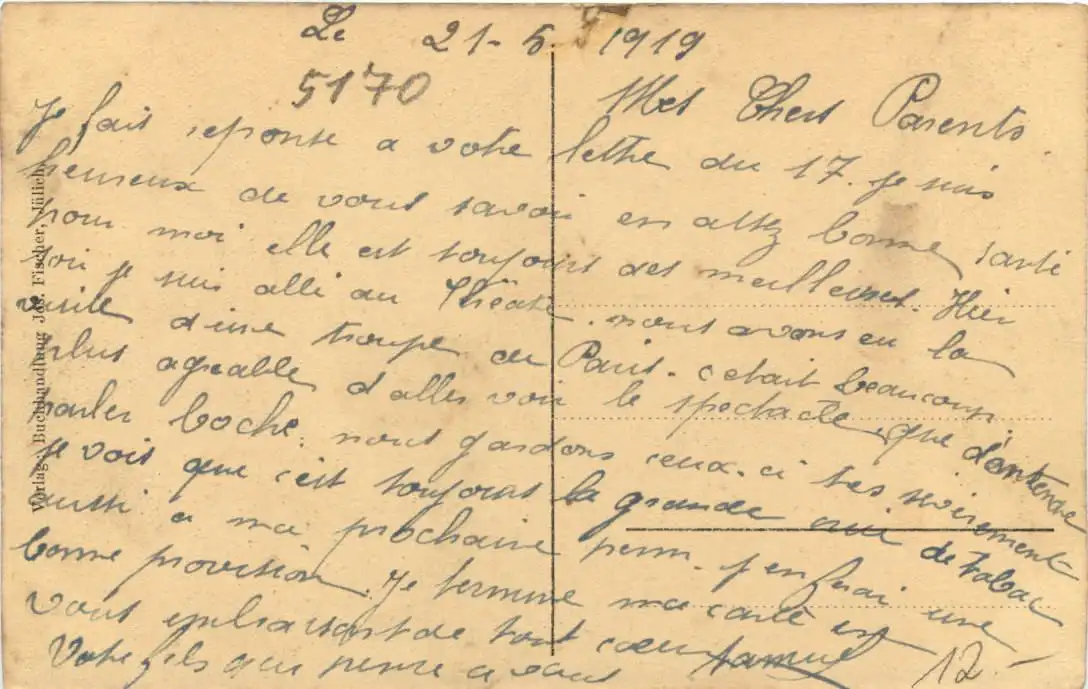 Le 21-5-1919
5170
Mes Chers Parents.
Je fais reponse a votre lettre du 17. je suis
heureux de vous savoir en assez bonne santé
pour moi elle est toujours des meilleures. Hier
soir je suis allé au Théatre. nous avons eu la
visite d'une troupe de Paris. c'etait beaucoup
plus agreable d'aller voir le spectacle que d'entendre
parler boche. nous gardons ceux-ci tres
je vois que c'est toujours la grande de tabac
aussi a ma prochaine perm. j'en ferai une
bonne provision. Je termine ma carte en
vous embrassant de tout coeur
Votre fils qui pense a vous
12.-
Verlag: Buchhandlung Jos. Fischer, Jülich